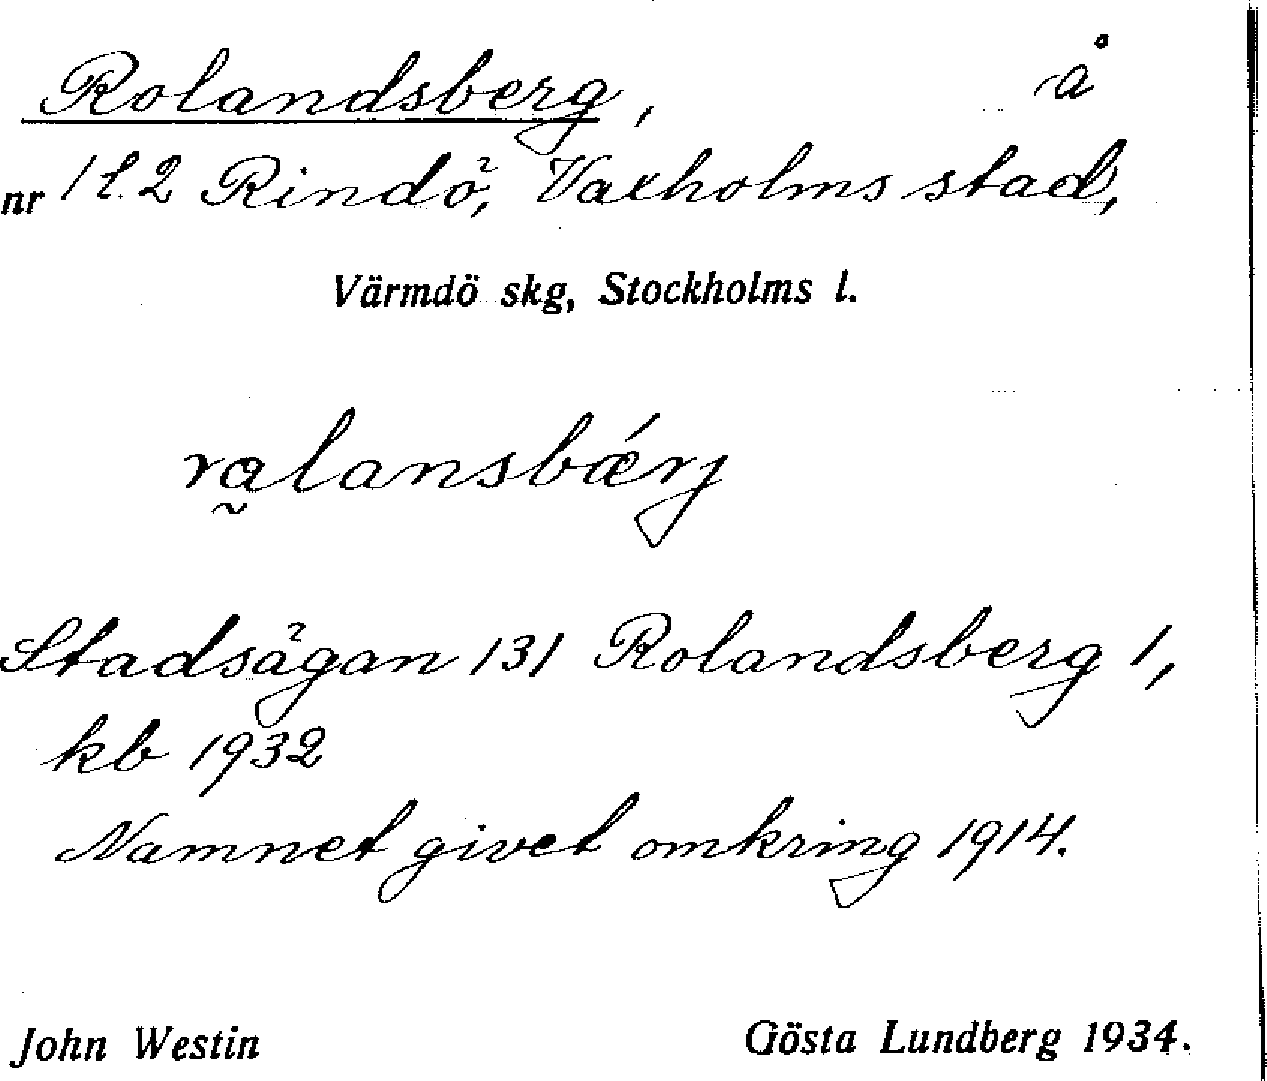 Rolandsberg, å
nr 1 l. 2 Rindö, Vaxholms stad,
Värmdö skg, Stockholms l.
ra̰lansbǽrj
Stadsägan 131 Rolandsberg 1,
kb 1932
Namnet givet omkring 1914.
John Westin Gösta Lundberg 1934.